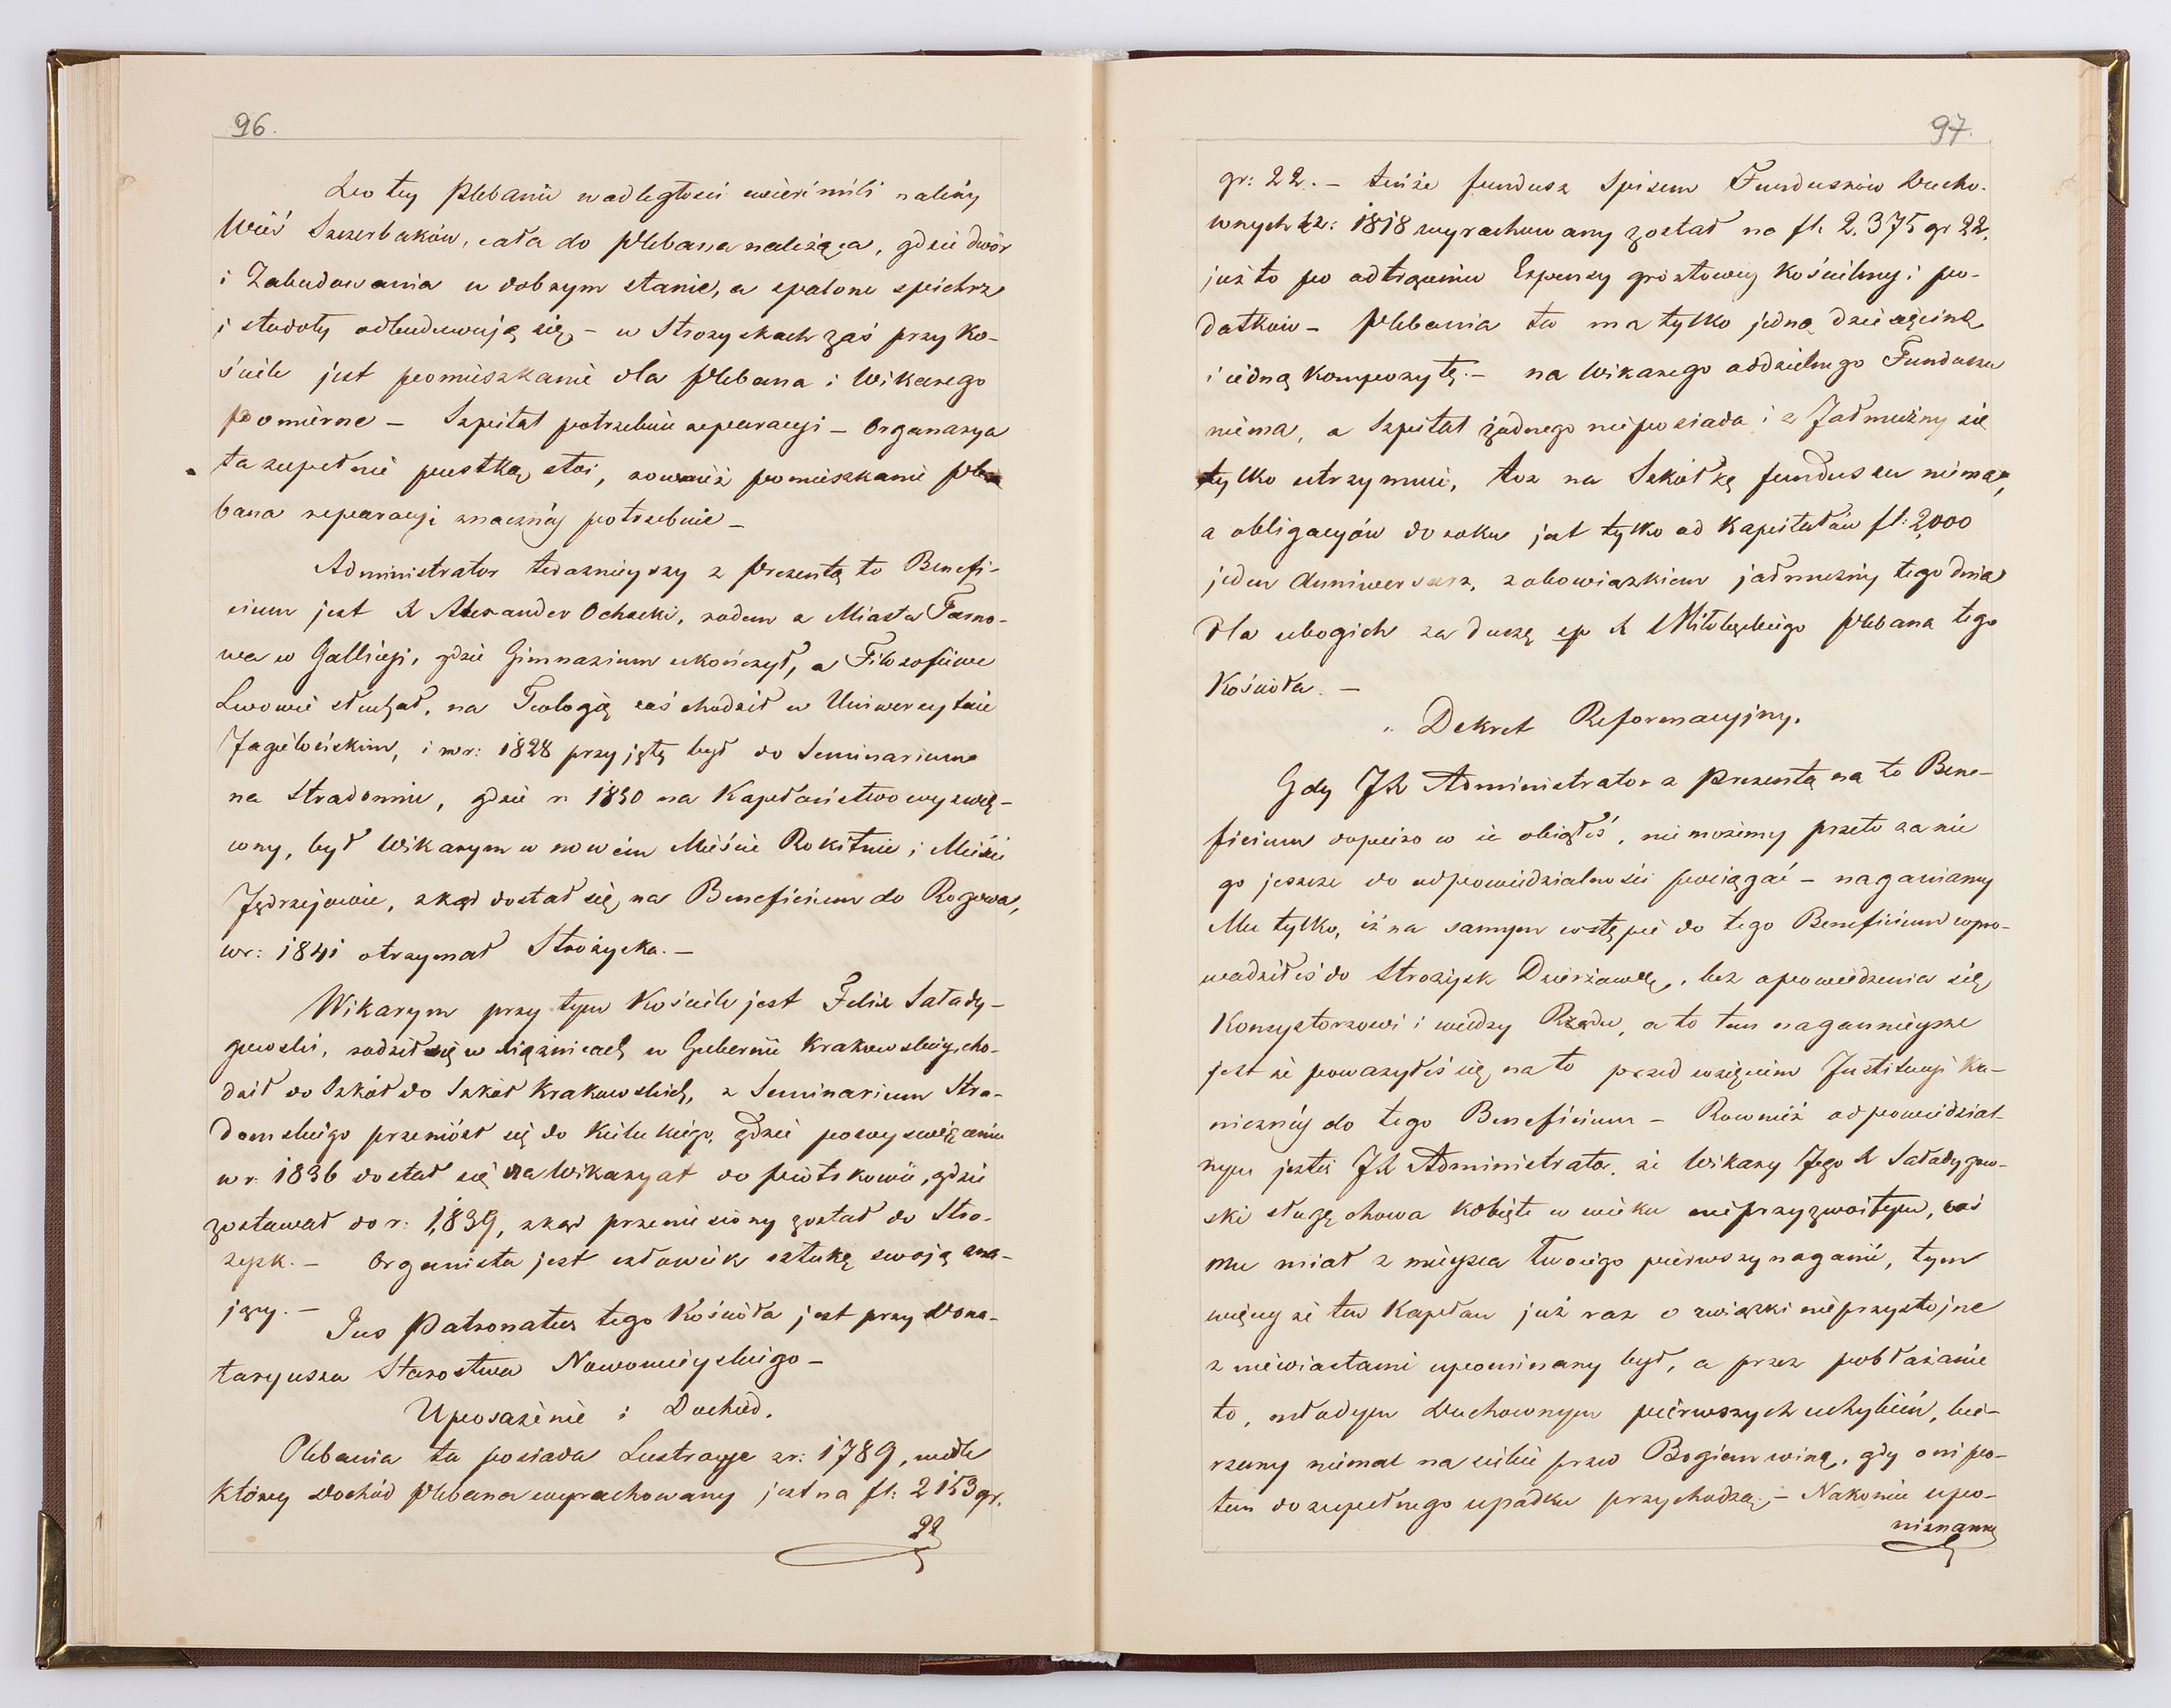 96.
Do tey Plebanii w odległości ćwierć mili należy
Wieś Szczerbaków, cała do Plebana należąca, gdzie dwór
i Zabudowania w dobrym stanie, a spalone spichrz
i stodoły odbudowują się, – w Strozyskach zaś przy Ko-
ściele jest pomieszkanie dla Plebana i Wikarego
pomierne – Szpital potrzebuie reparacyi – Organarya
ta zupełnie pustką stoi, rownież pomieszkanie Ple
bana reparacyi znaczney potrzebuie –
Administrator teraznieyszy z Prezentą to Benefi-
cium jest X Alexander Ochocki, rodem z Miasta Tarno-
wa w Gallicyi, gdzie Gimnazium ukończył, a Filozofii we
Lwowie słuchał, na Teologię zaś chodził w Uniwersytecie
Jagiellońskim, i w r: 1828 przyjęty był do Seminarium
na Stradomiu, gdzie r. 1830 na Kapłaństwo wyświę-
cony, był Wikarym w nowem Mieście Rokitnie i Mieście
Jędrzejowie, zkąd dostał się na Beneficium do Rogowa,
w r: 1841 otrzymał Strożyska. –
Wikarym przy tym Kościele jest Felix Saład y-
gowski, rodził się w Xiążnicach w Gubernii Krakowskiey, cho-
dził do Szkół do Szkół Krakowskich, z Seminarium Stra-
domskiego przeniósł się do Kieleckiego, gdzie po wyswięceniu
w r. 1836 dostał się na Wikaryat do Piotrkowic, gdzie
zostawał do r: 1,839, zkąd przeniesiony został do Stro-
zysk. – Organista jest człowiek sztukę swoją zna-
jący. –
Jus Patronatus tego Kościoła jest przy Dona-
taryusza Starostwa Nowomieyskiego –
Uposażenie i Dochód.
Plebania ta posiada Lustracye z r: 1789, wedle
którey dochód Plebana wyrachowany jest na fl: 2153 gr.
22
97.
gr: 22. – tenże fundusz Spisem Funduszów Ducho-
wnych z r: 1818 wyrachowany został na fl. 2.375 gr 22.
już to po odtrąceniu Expensy grontowey Kościelney i po-
datkow – Plebania ta ma tylko jedną dziesięcinę
i iedną Kompozytę. – na Wikarego oddzielnego Funduszu
niema, a Szpital żadnego nieposiada i z Jałmużny się
tylko utrzymuie, toz na Szkółkę funduszu niema,
a obligacyów do roku jest tylko od Kapitałów fl: 2,000
jeden Anniwersarz, z obowiązkiem jałmużny tego dnia
dla ubogich za duszę śp X Miłolęckiego Plebana tego
Kościoła. –
Dekret Reformacyjny.
Gdy JX Administrator z Prezentą na to Bene-
ficium dopiero w ie obiąłeś, nie możemy przeto za nie
go jeszcze do odpowiedzialności pociągać – naganiamy
Mu tylko, iż na samym wstępie do tego Beneficium wpro-
wadziłeś do Strozysk Dzierżawcę, bez opowiedzenia się
Konsystorzowi i wiedzy Rządu, a to tem nagannieysze
jest że poważyłeś się na to przed wzięciem Instytucyi Ka-
noniczney do tego Beneficium – Rownież odpowiedzial
nym jesteś JX Administrator, że Wikary Jego X Sałady gow-
ski sługę chowa kobietę w wieku nieprzyzwoitym, coś
mu miał z mieysca Twoiego pierwszy naganić, tym
więcey że ten Kapłan już raz o związki nieprzystojne
z niewiastami upominany był, a przez pobłażanie
to, młodym Duchownym pierwszych uchybień, bie-
rzemy niemal na siebie przed Bogiem winę, gdy oni po-
tem do zupełnego upadku przychodzą. – Nakonie upo-